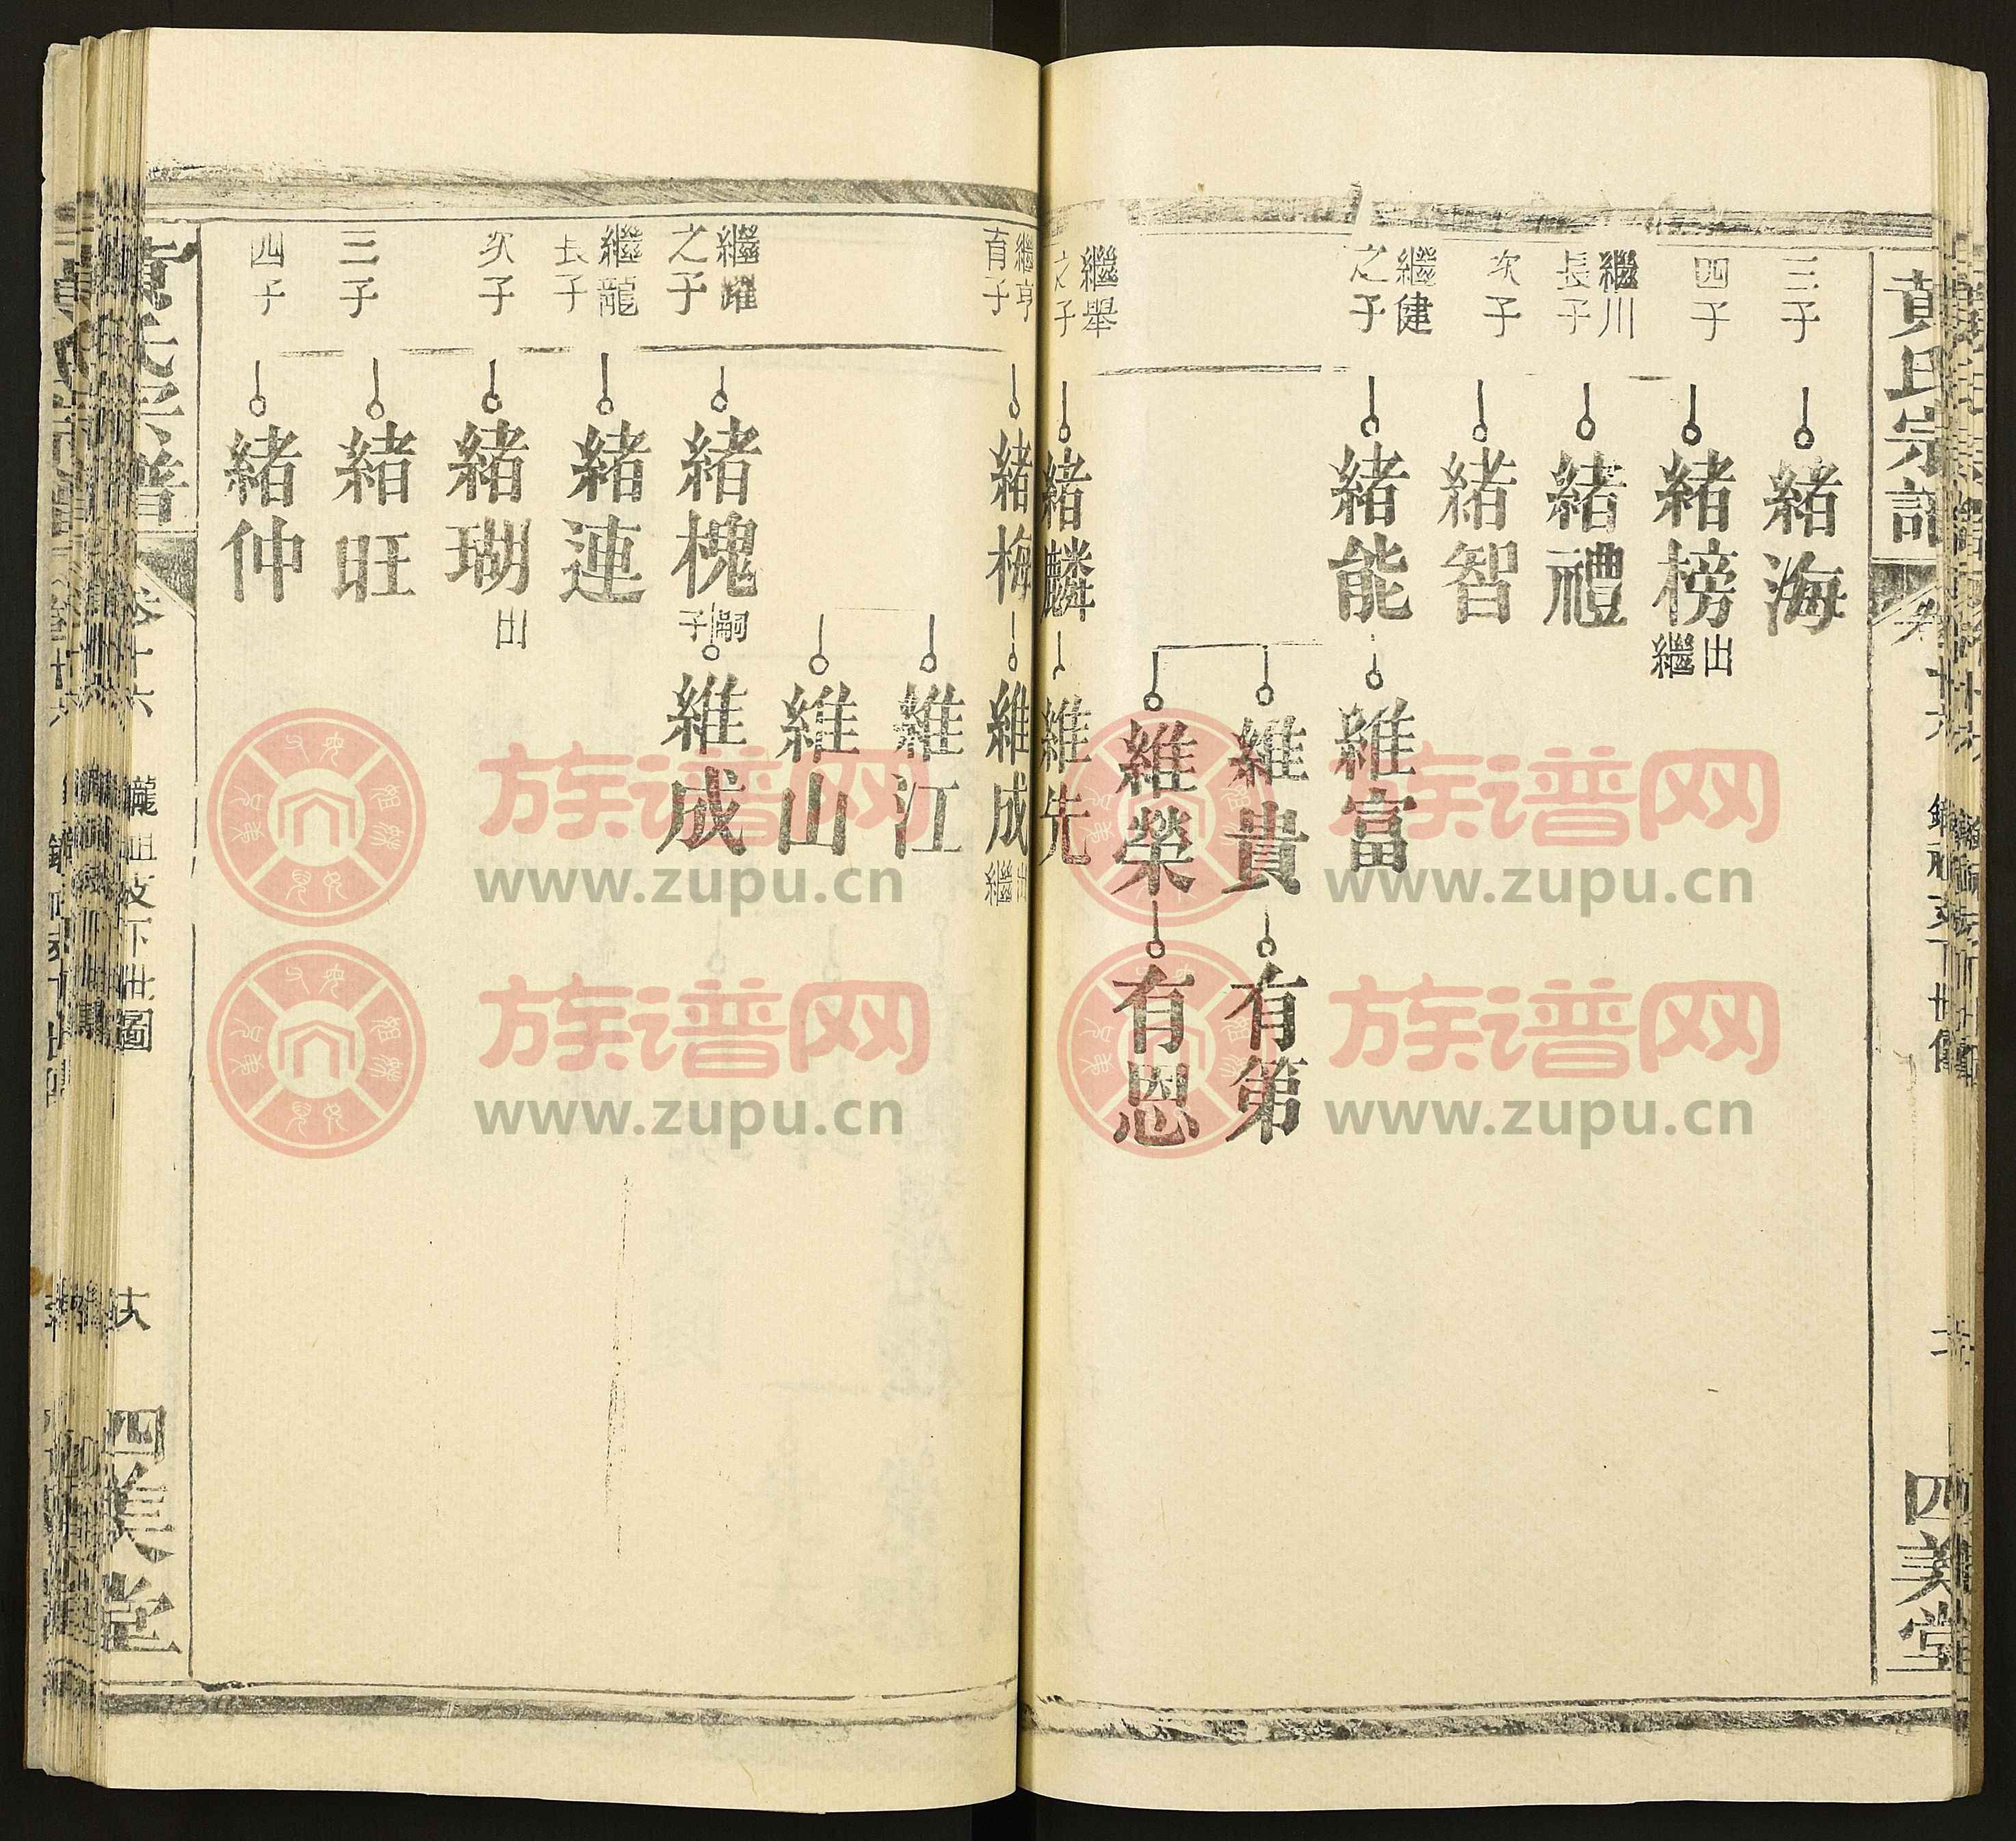 黃氏宗譜
卷十六
四美堂
三子
緒海
四子
緒榜
出繼
繼川
長子
緒禮
次子
緒智
繼健
之子
緒能
維富
維貴
有第
維榮
有恩
繼舉
之子
緒麟
維先
繼亨
育子
緒梅
維成
出繼
維江
維山
繼躍
之子
緒槐
嗣子
維成
繼龍
長子
緒連
次子
緒瑚
出
三子
緒旺
四子
緒仲
黃氏宗譜
卷十六
四美堂
族谱网
www.zupu.cn
族谱网
www.zupu.cn
族谱网
www.zupu.cn
族谱网
www.zupu.cn